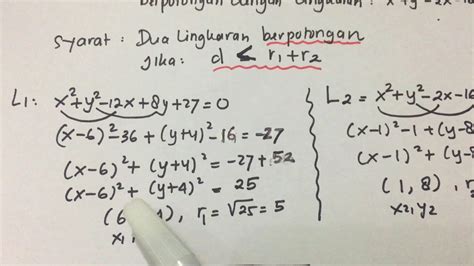 berpotongan dengan lingkaran : x²+y²-2x-16
Syarat : Dua Lingkaran berpotongan
Jika : d < r₁+r₂
L₁ : x²+y²-12x+8y+27=0
(x-6)²-36+(y+4)²-16=-27
(x-6)²+(y+4)²=-27+52
(x-6)²+(y+4)²=25
(6 4), r₁=√25=5
x₁,
L₂ = x²+y²-2x-16
(x-1)²-1+(y-8
(x-1)²+(y-8
(1,8), r
x₂,y₂